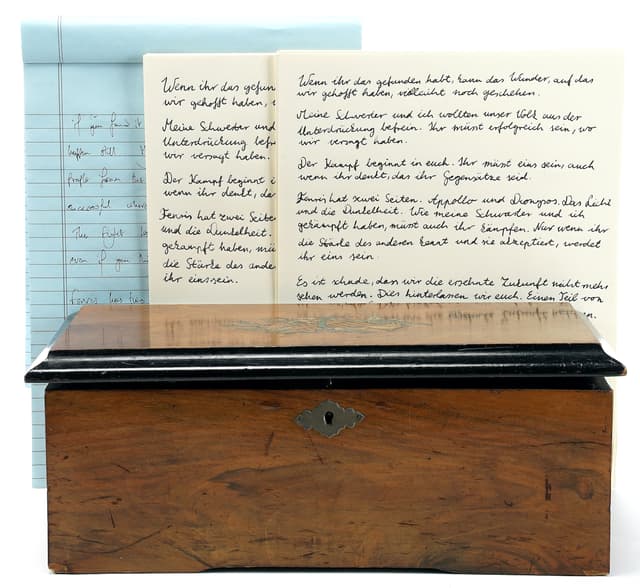 if you find it
people from
successful
The fight be
even if you
Fenris has
Wenn ihr das gefun
wir gehofft haben,
Meine Schwester und
Unterdrückung befr
wir versagt haben.
Der Kampf beginnt i
wenn ihr denkt, da
Fenris hat zwei Seite
und die Dunkelheit.
gekämpft haben, mü
die Stärke des ande
ihr eins sein.
Wenn ihr das gefunden habt, kann das Wunder, auf das
wir gehofft haben, vielleicht noch geschehen.
Meine Schwester und ich wollten unser Volk aus der
Unterdrückung befreien. Ihr müsst erfolgreich sein, wo
wir versagt haben.
Der Kampf beginnt in euch. Ihr müsst eins sein, auch
wenn ihr denkt, das ihr Gegensätze seid.
Fenris hat zwei Seiten. Appollo und Dionysos. Das Licht
und die Dunkelheit. Wie meine Schwester und ich
gekämpft haben, müsst auch ihr kämpfen. Nur wenn ihr
die Stärke des anderen kennt und sie akzeptiert, werdet
ihr eins sein.
Es ist schade, dass wir die ersehnte Zukunft nicht mehr
sehen werden. Dies hinterlassen wir euch. Einen Teil von